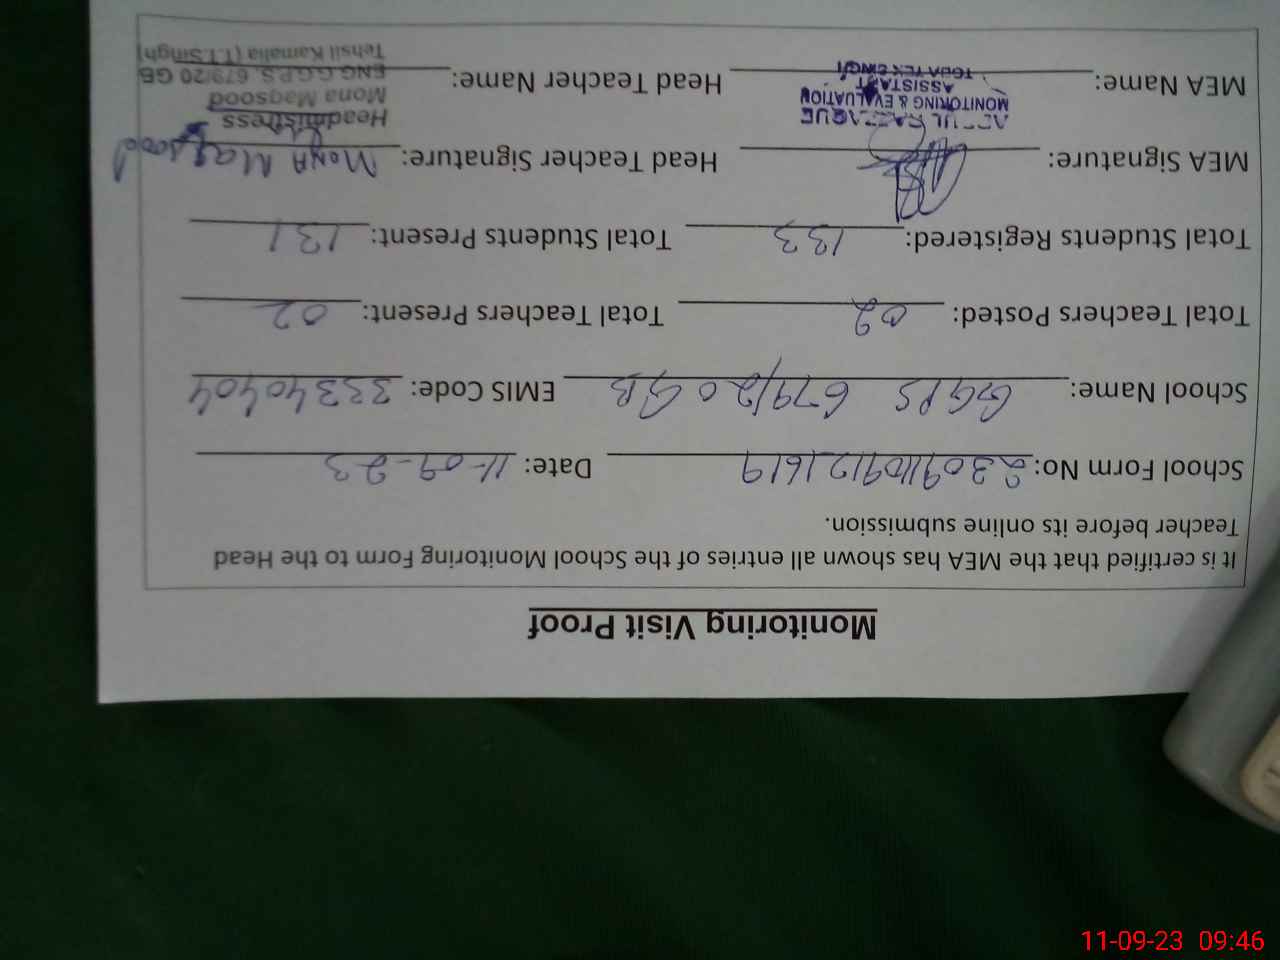 Monitoring Visit Proof
It is certified that the MEA has shown all entries of the School Monitoring Form to the Head
Teacher before its online submission.
School Form No: 23091109121619 Date: 11-09-23
School Name: GGPS 679/20 GB EMIS Code: 33340404
Total Teachers Posted: 02 Total Teachers Present: 02
Total Students Registered: 133 Total Students Present: 131
MEA Signature: Head Teacher Signature: MONA Maqsood
MEA Name: Head Teacher Name:
ABDUL RAZZAQUE
MONITORING & EVALUATION
ASSISTANT
TOBA TEK SINGH
Headmistress
Mona Maqsood
ENG G.G.P.S. 679/20 GB
Tehsil Kamalia (T.T.Singh)
11-09-23 09:46